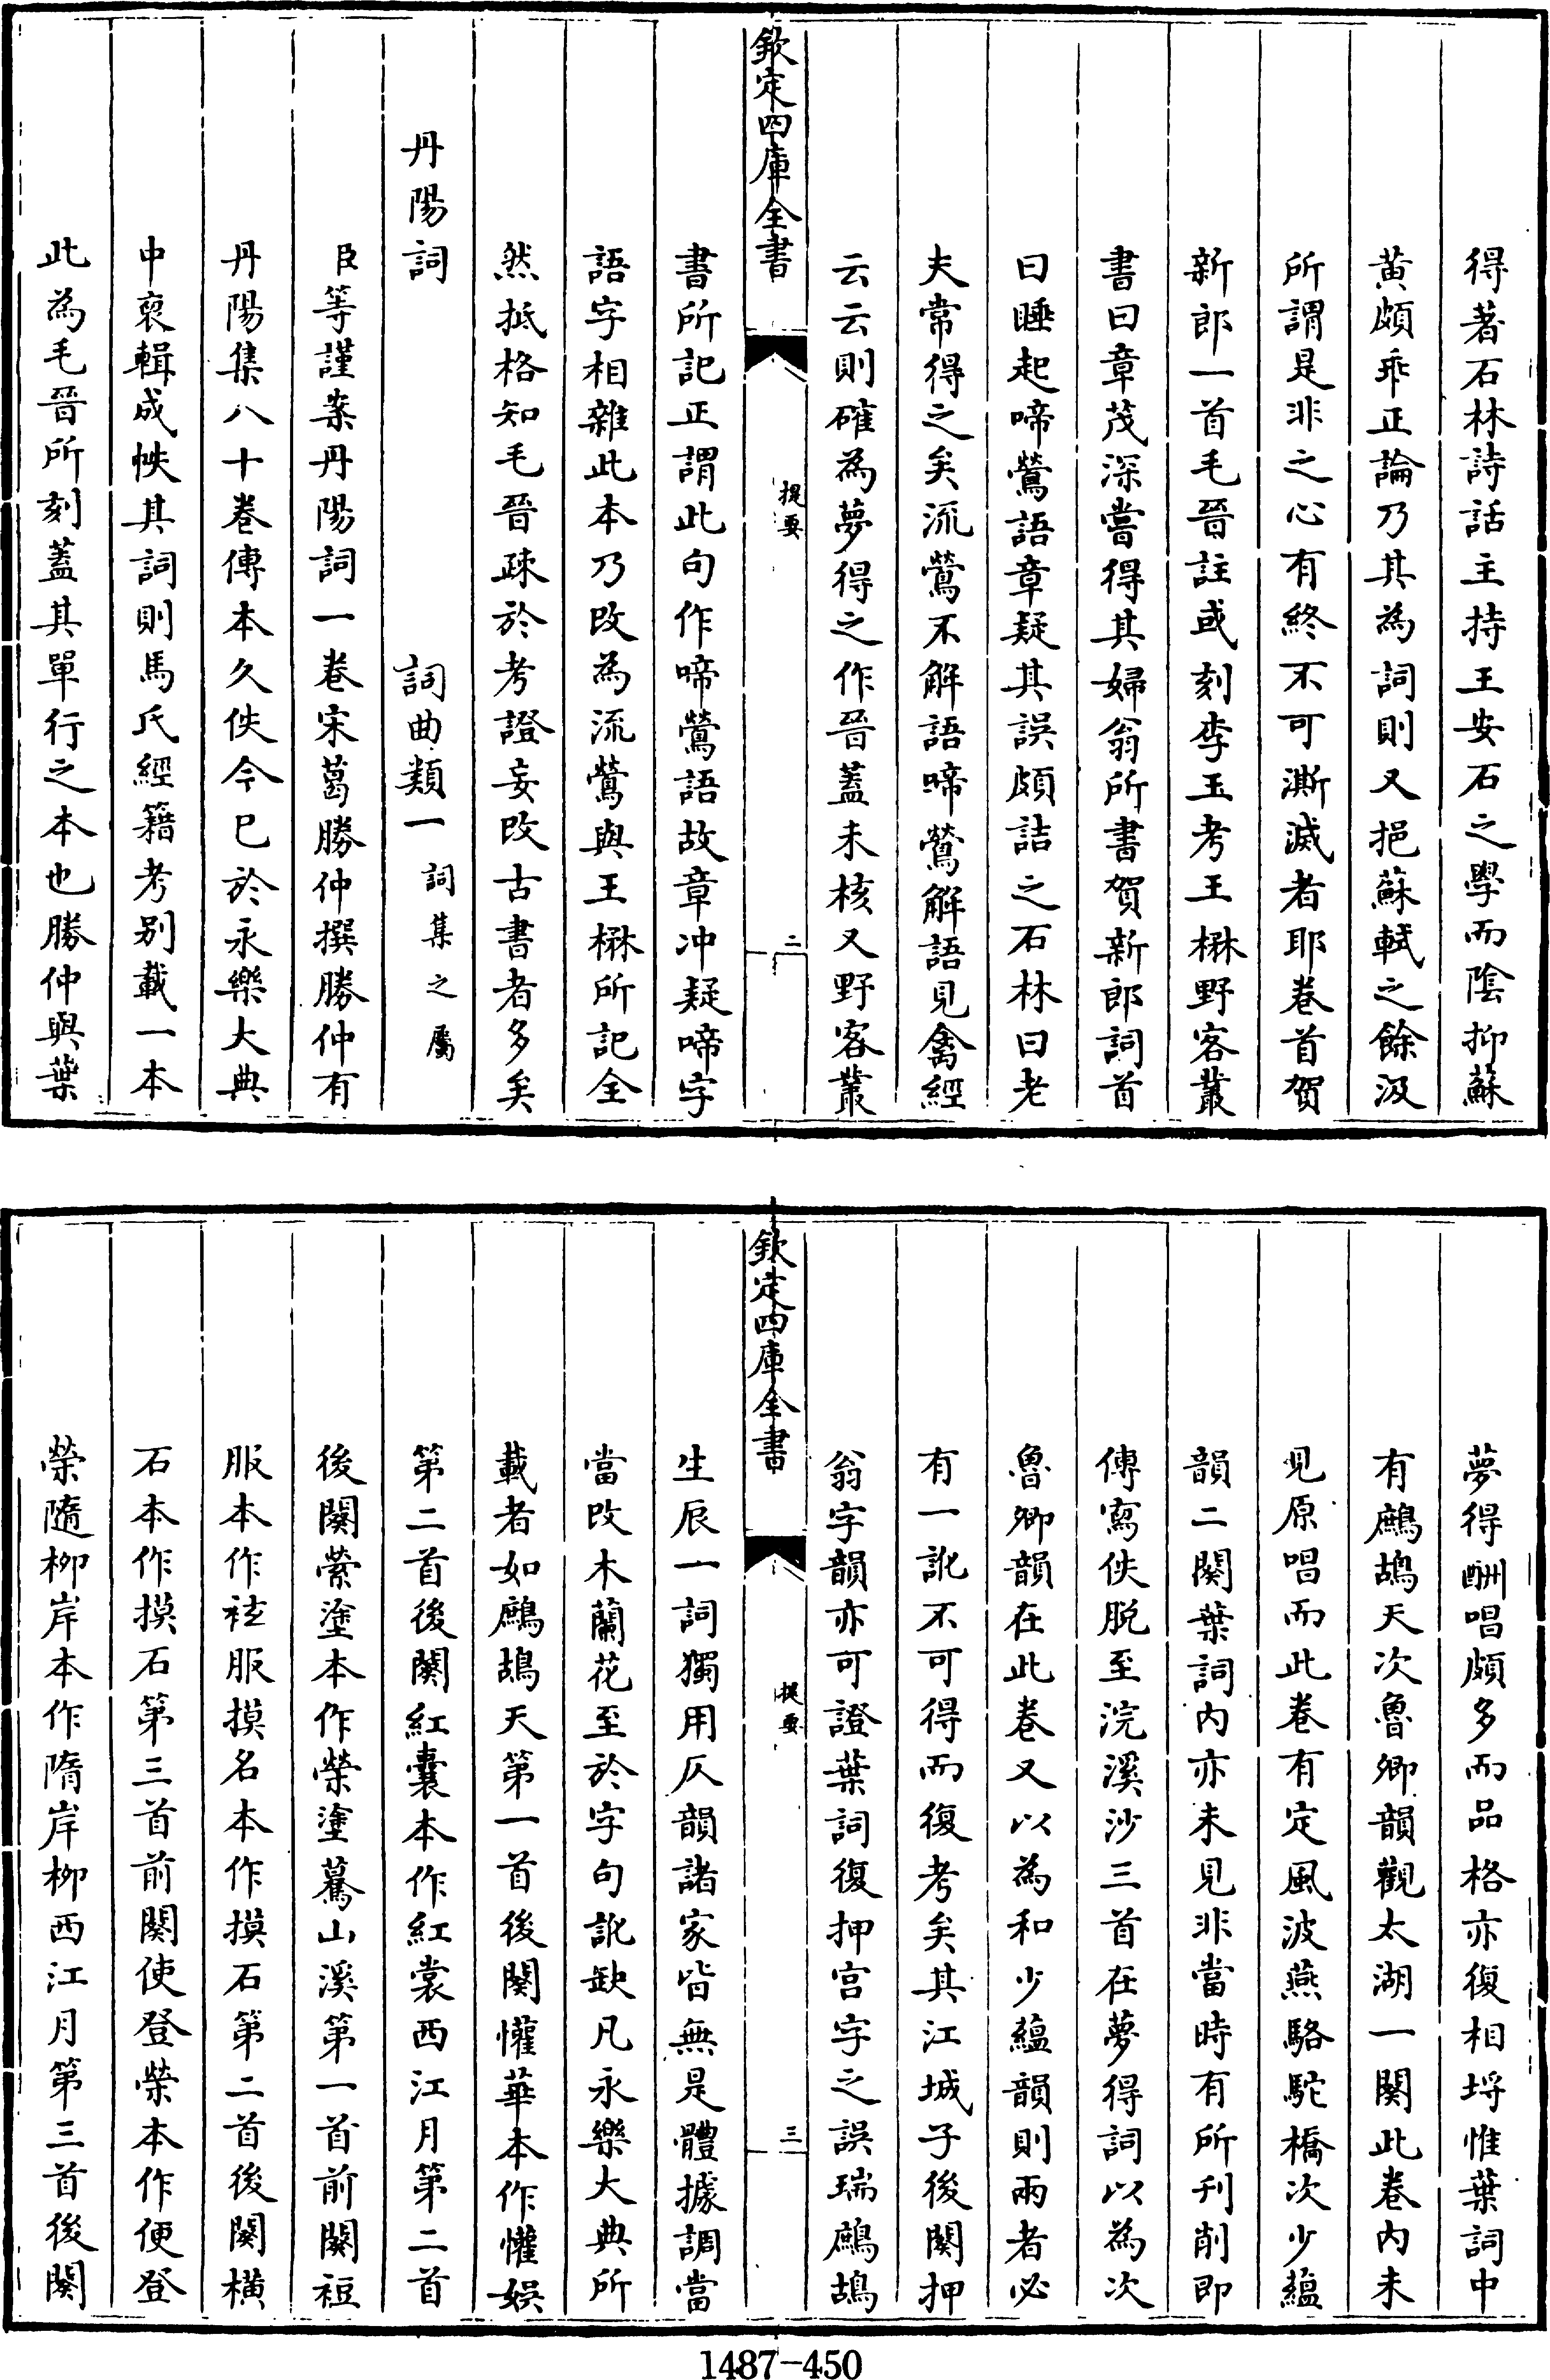 得著石林詩話主持王安石之學而陰抑蘇
黃頗乖正論乃其為詞則又挹蘇軾之餘汲
所謂是非之心有終不可澌滅者耶卷首賀
新郎一首毛晉註或刻李玉考王楙野客叢
書曰章茂深嘗得其婦翁所書賀新郎詞首
曰睡起啼鶯語章疑其誤頗詰之石林曰老
夫常得之矣流鶯不解語啼鶯解語見禽經
云云則確為夢得之作晉蓋未核又野客叢
欽定四庫全書
提要
二
書所記正謂此句作啼鶯語故章冲疑啼字
語字相雜此本乃改為流鶯與王楙所記全
然抵格知毛晉疎於考證妄改古書者多矣
丹陽詞 詞曲類一 詞集之屬
臣等謹案丹陽詞一卷宋葛勝仲撰勝仲有
丹陽集八十卷傳本久佚今已於永樂大典
中裒輯成帙其詞則馬氏經籍考別載一本
此為毛晉所刻蓋其單行之本也勝仲與葉
夢得酬唱頗多而品格亦復相埒惟葉詞中
有鷓鴣天次魯卿韻觀太湖一闋此卷內未
見原唱而此卷有定風波燕駱駝橋次少蘊
韻二闋葉詞內亦未見非當時有所刊削即
傳寫佚脫至浣溪沙三首在夢得詞以為次
魯卿韻在此卷又以為和少蘊韻則兩者必
有一訛不可得而復考矣其江城子後闋押
翁字韻亦可證葉詞復押宮字之誤瑞鷓鴣
欽定四庫全書
提要
三
生辰一詞獨用仄韻諸家皆無是體據調當
當改木蘭花至於字句訛缺凡永樂大典所
載者如鷓鴣天第一首後闋懽華本作懽娛
第二首後闋紅囊本作紅裳西江月第二首
後闋縈塗本作榮塗驀山溪第一首前闋裋
服本作袨服摸名本作摸石第二首後闋橫
石本作摸石第三首前闋使登榮本作便登
榮隨柳岸本作隋岸柳西江月第三首後闋
1487-450